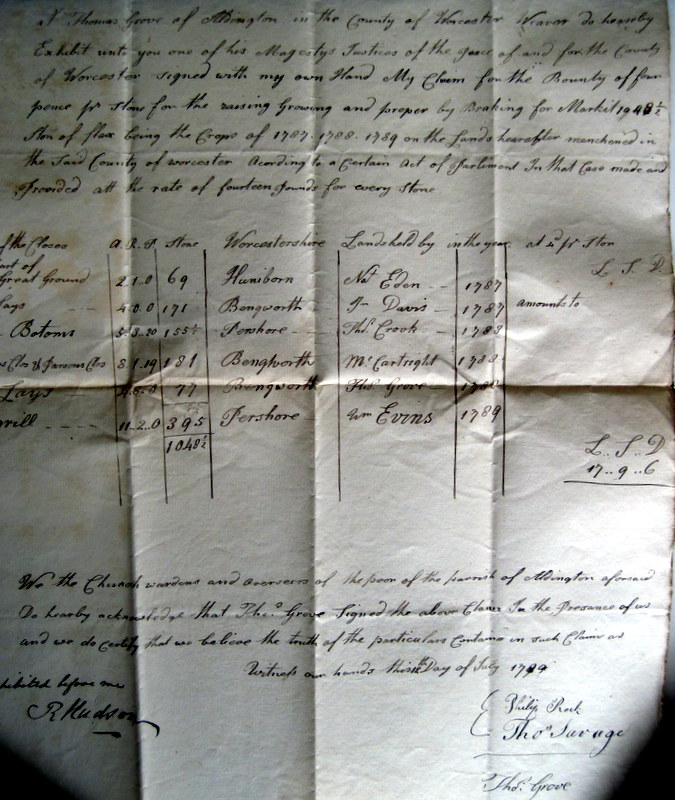 I Thomas Grove of Aldington in the County of Worcester Weaver do hereby
Exhibit unto you one of his Magestys Justices of the peace of and for the County
of Worcester Signed with my own Hand My Claim for the Bounty of four
pence pr Stone for the raising Growing and preper by Breaking for Market 1048½
Ston of flax being the Crops of 1787 1788 1789 on the Lands hearafter menchened in
the Said County of worcester Acording to a Certain Act of Parliment In that Case made and
Provided att the rate of fourteen pounds for every Stone
of the Closes A. R. P Stone Worcestershire Lands held by in the year at 4d pr Ston
part of L. S. D.
Great Ground 2.1.0 69 Huniborn Nat Eden 1787
Lays 4.0.0 171 Bengworth Jn Davis 1787 amounts to
Botoms 5.3.20 155½ Pershore Thos. Crook 1788
Clos & Parsons Clos 8.1.19 181 Bengworth Mr Cartright 1788
Lays 77 Bengworth Thos. Grove 1788
11.2.0 395 Pershore Wm Evins 1789
1048½
L.. S.. D
17..9..6
We the Church wardens and overseers of the poor of the parrish of Aldington aforsaid
Do hereby acknowledge that Thos. Grove Signed the above Claim In the Presance of us
and we do certify that we believe the truth of the particulars Containd in such Claim as
Witness our hands this Day of July 1789
hibited before me
R Hudson
Philip
Thos Savage
Thos. Grove